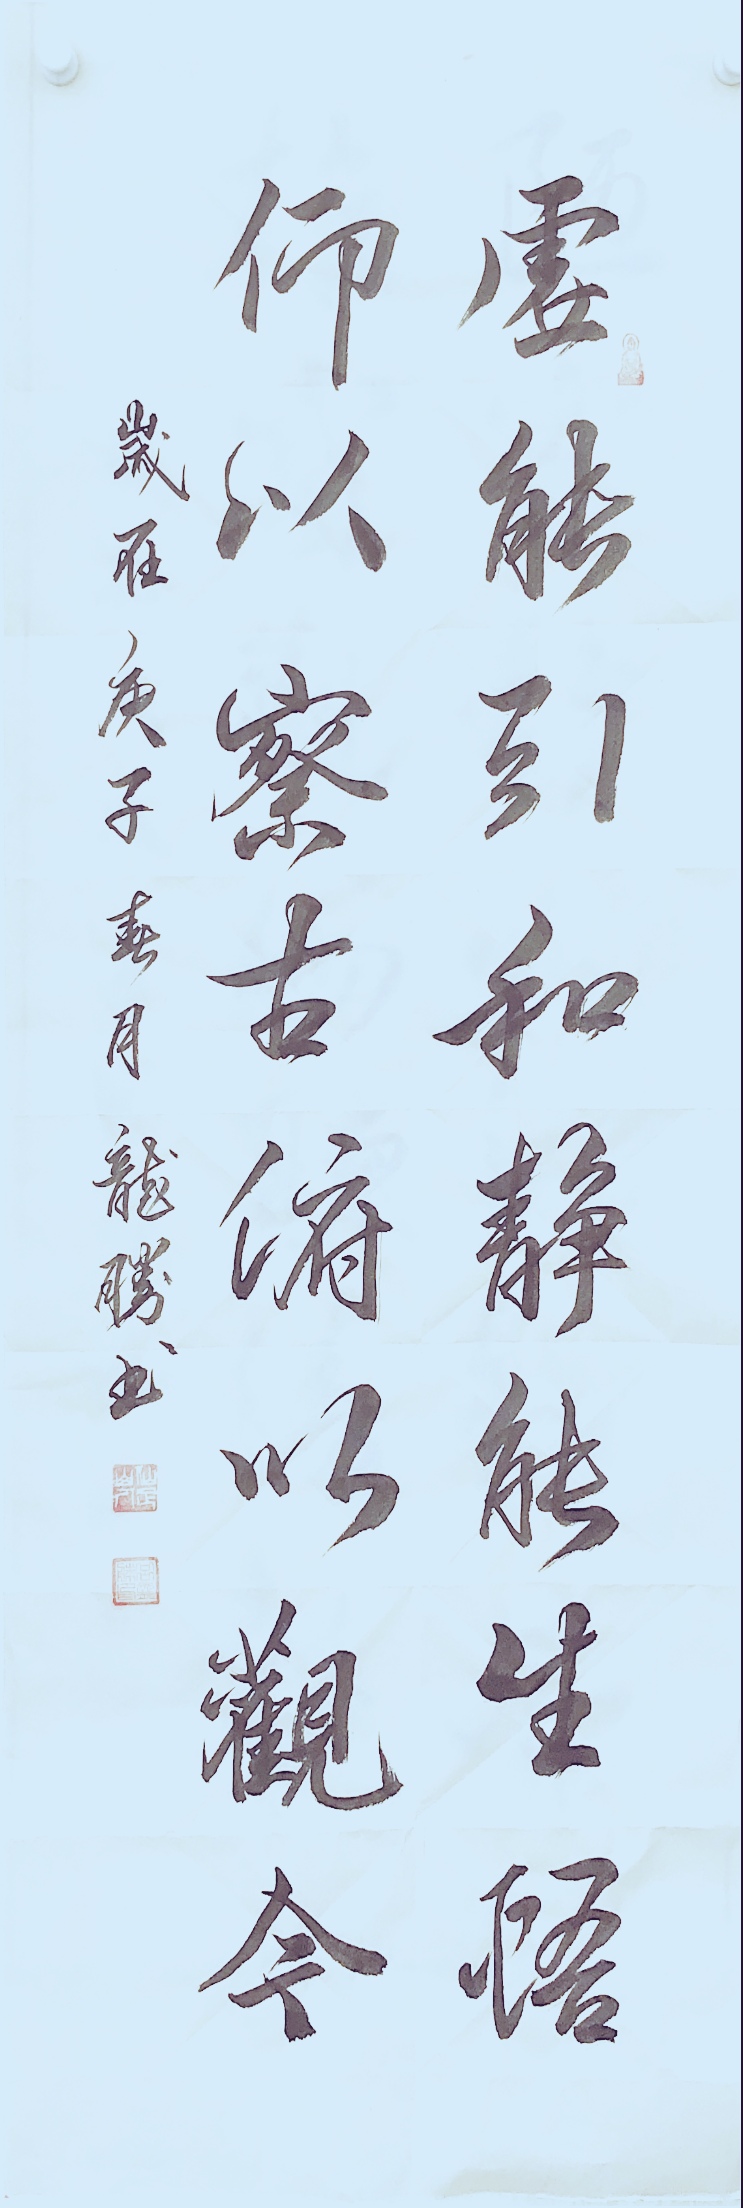 虚能引和静能生悟
仰以察古俯以觀今
歲在庚子春月龍騰书